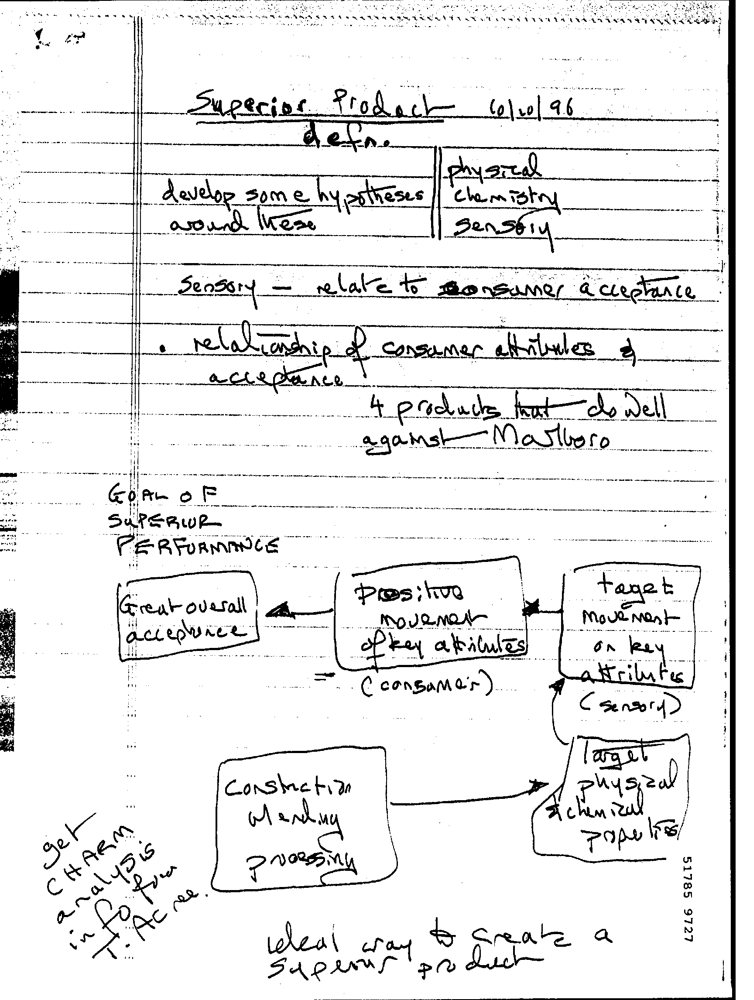 Superior Product 10/10/96
defn.
develop some hypotheses
around these
physical
chemistry
sensory
Sensory - relate to consumer acceptance
. relationship of consumer attributes &
acceptance
4 products that do well
against Marlboro
GOAL OF
SUPERIOR
PERFORMANCE
Great overall
acceptance
Positive
movement
of key attributes
(consumer)
target
movement
on key
attributes
(sensory)
Construction
blending
processing
Target
physical
& chemical
properties
get
CHARM
analysis
info from
T. Acree.
ideal way to create a
superior product
51785 9727